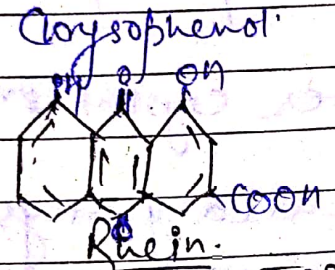 Chrysophenol
OH O OH
COOH
O
Rhein.